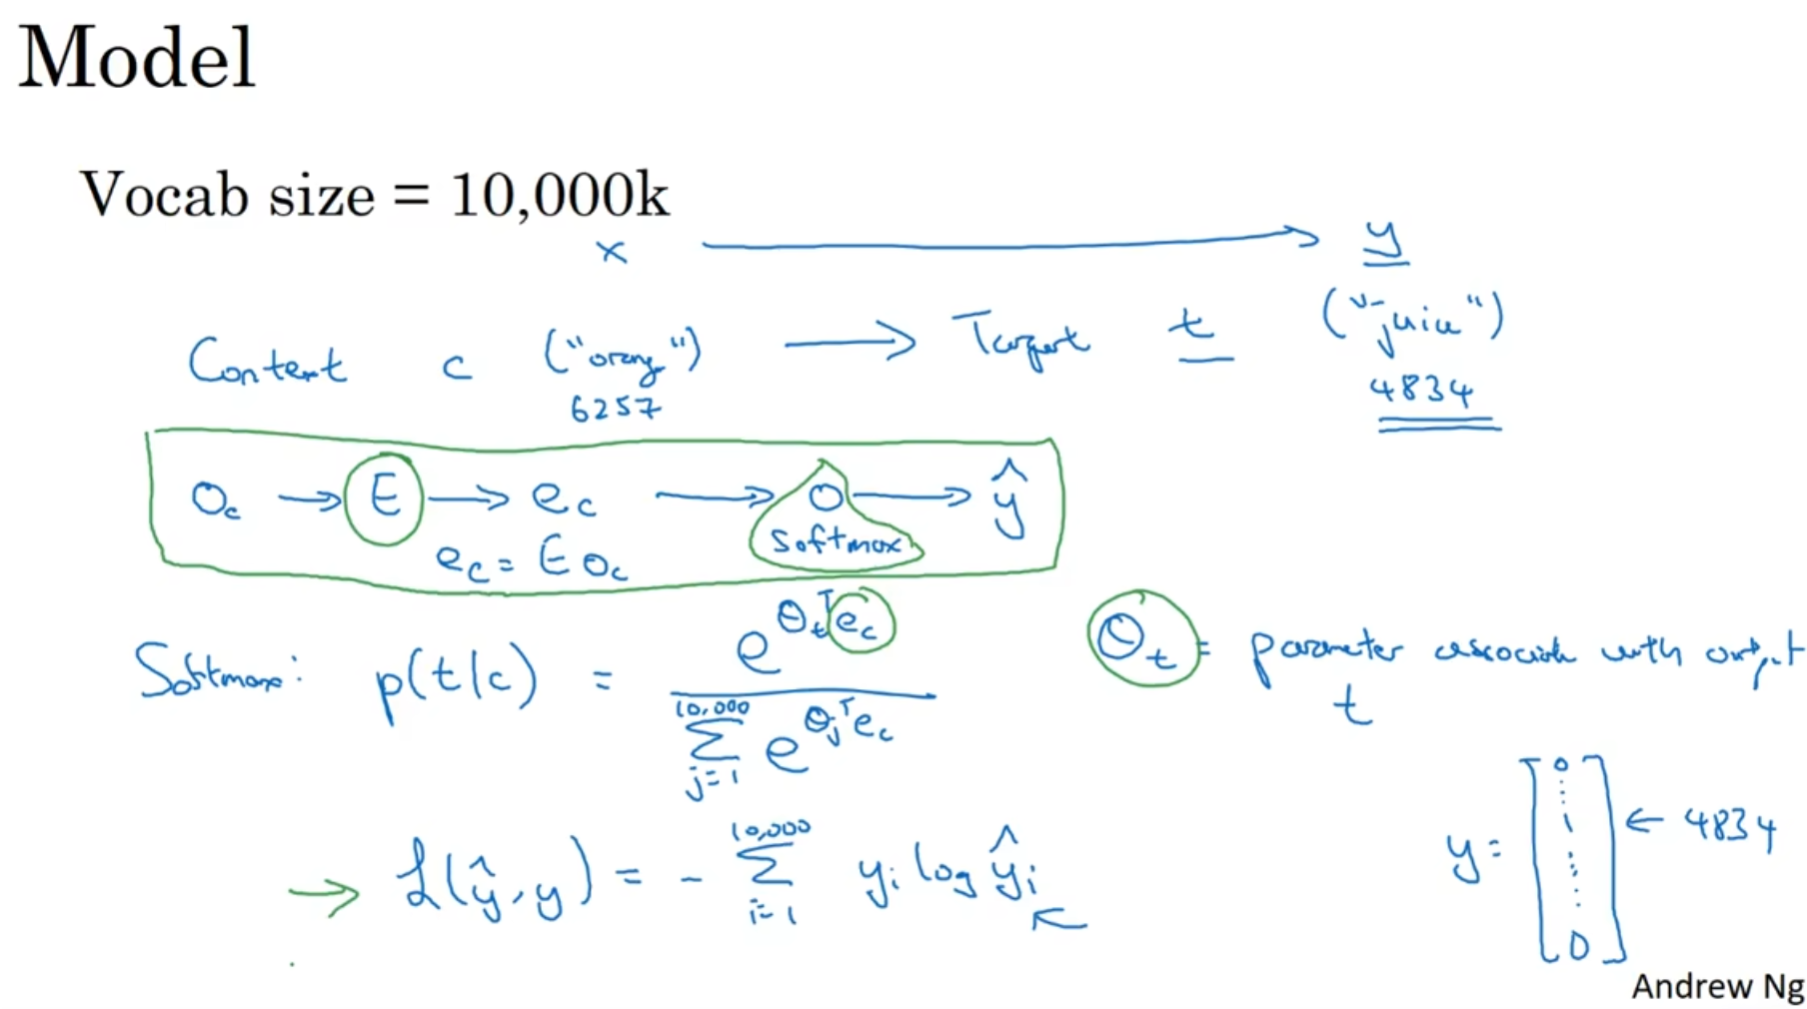 Model
Vocab size = 10,000k
x ⟶ y
Context c ("orange") ⟶ Target t ("juice")
6257 4834
O_c → E → e_c → O → ŷ
softmax
e_c = E O_c
Softmax: p(t|c) = e^{θ_t^T e_c} / Σ_{j=1}^{10,000} e^{θ_j^T e_c}
θ_t = parameter associate with output t
ℒ(ŷ, y) = - Σ_{i=1}^{10,000} y_i log ŷ_i
y = [0 ⋮ 1 ⋮ 0] ← 4834
Andrew Ng